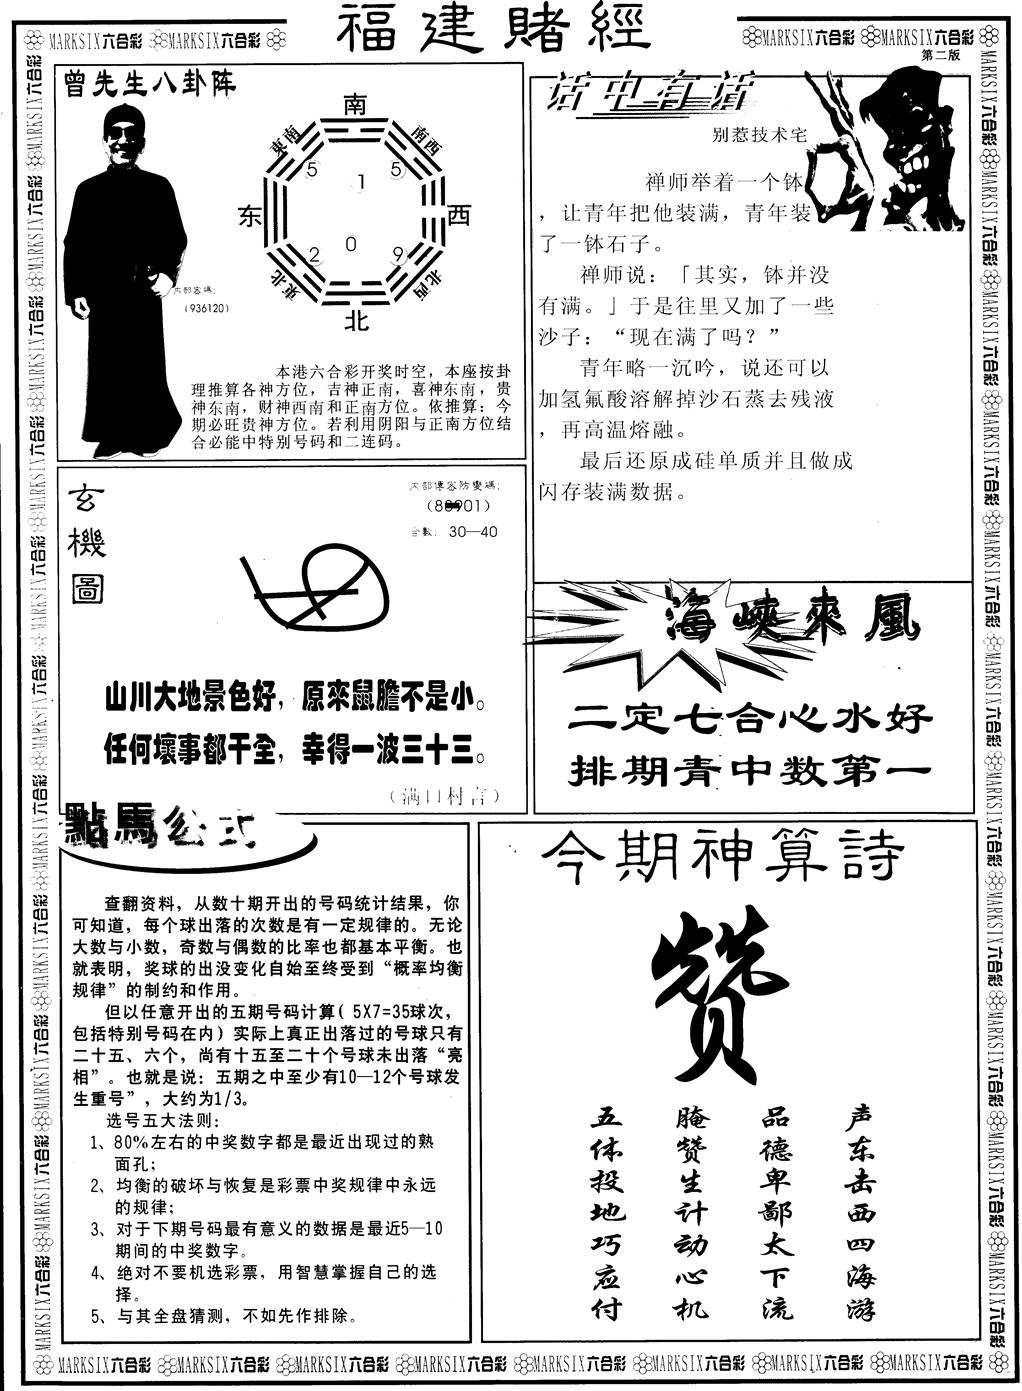 福建賭經
MARKSIX六合彩 MARKSIX六合彩
MARKSIX六合彩 MARKSIX六合彩
第二版
曾先生八卦阵
南
東南
南西
5
1
5
东
西
2
0
9
東北
北西
北
内部密碼:
(936120)
本港六合彩开奖时空，本座按卦
理推算各神方位，吉神正南，喜神东南，贵
神东南，财神西南和正南方位。依推算：今
期必旺贵神方位。若利用阴阳与正南方位结
合必能中特别号码和二连码。
话中有话
别惹技术宅
禅师举着一个钵
，让青年把他装满，青年装
了一钵石子。
禅师说：「其实，钵并没
有满。」于是往里又加了一些
沙子：“现在满了吗？”
青年略一沉吟，说还可以
加氢氟酸溶解掉沙石蒸去残液
，再高温熔融。
最后还原成硅单质并且做成
闪存装满数据。
玄機圖
内部傳密防變碼:
合數: 30—40
山川大地景色好，原來鼠膽不是小。
任何壞事都干全，幸得一波三十三。
（满口村言）
海峽來風
二定七合心水好
排期青中数第一
點馬公式
查翻资料，从数十期开出的号码统计结果，你
可知道，每个球出落的次数是有一定规律的。无论
大数与小数，奇数与偶数的比率也都基本平衡。也
就表明，奖球的出没变化自始至终受到“概率均衡
规律”的制约和作用。
但以任意开出的五期号码计算( 5X7=35球次，
包括特别号码在内）实际上真正出落过的号球只有
二十五、六个，尚有十五至二十个号球未出落“亮
相”。也就是说：五期之中至少有10—12个号球发
生重号”，大约为1/3。
选号五大法则:
1、80%左右的中奖数字都是最近出现过的熟
面孔;
2、均衡的破坏与恢复是彩票中奖规律中永远
的规律;
3、对于下期号码最有意义的数据是最近5—10
期间的中奖数字。
4、绝对不要机选彩票，用智慧掌握自己的选
择。
5、与其全盘猜测，不如先作排除。
今期神算詩
赞
声东击西四海游
品德卑鄙太下流
腌赞生计动心机
五体投地巧应付
MARKSIX六合彩 MARKSIX六合彩 MARKSIX六合彩 MARKSIX六合彩 MARKSIX六合彩 MARKSIX六合彩 MARKSIX六合彩 MARKSIX六合彩